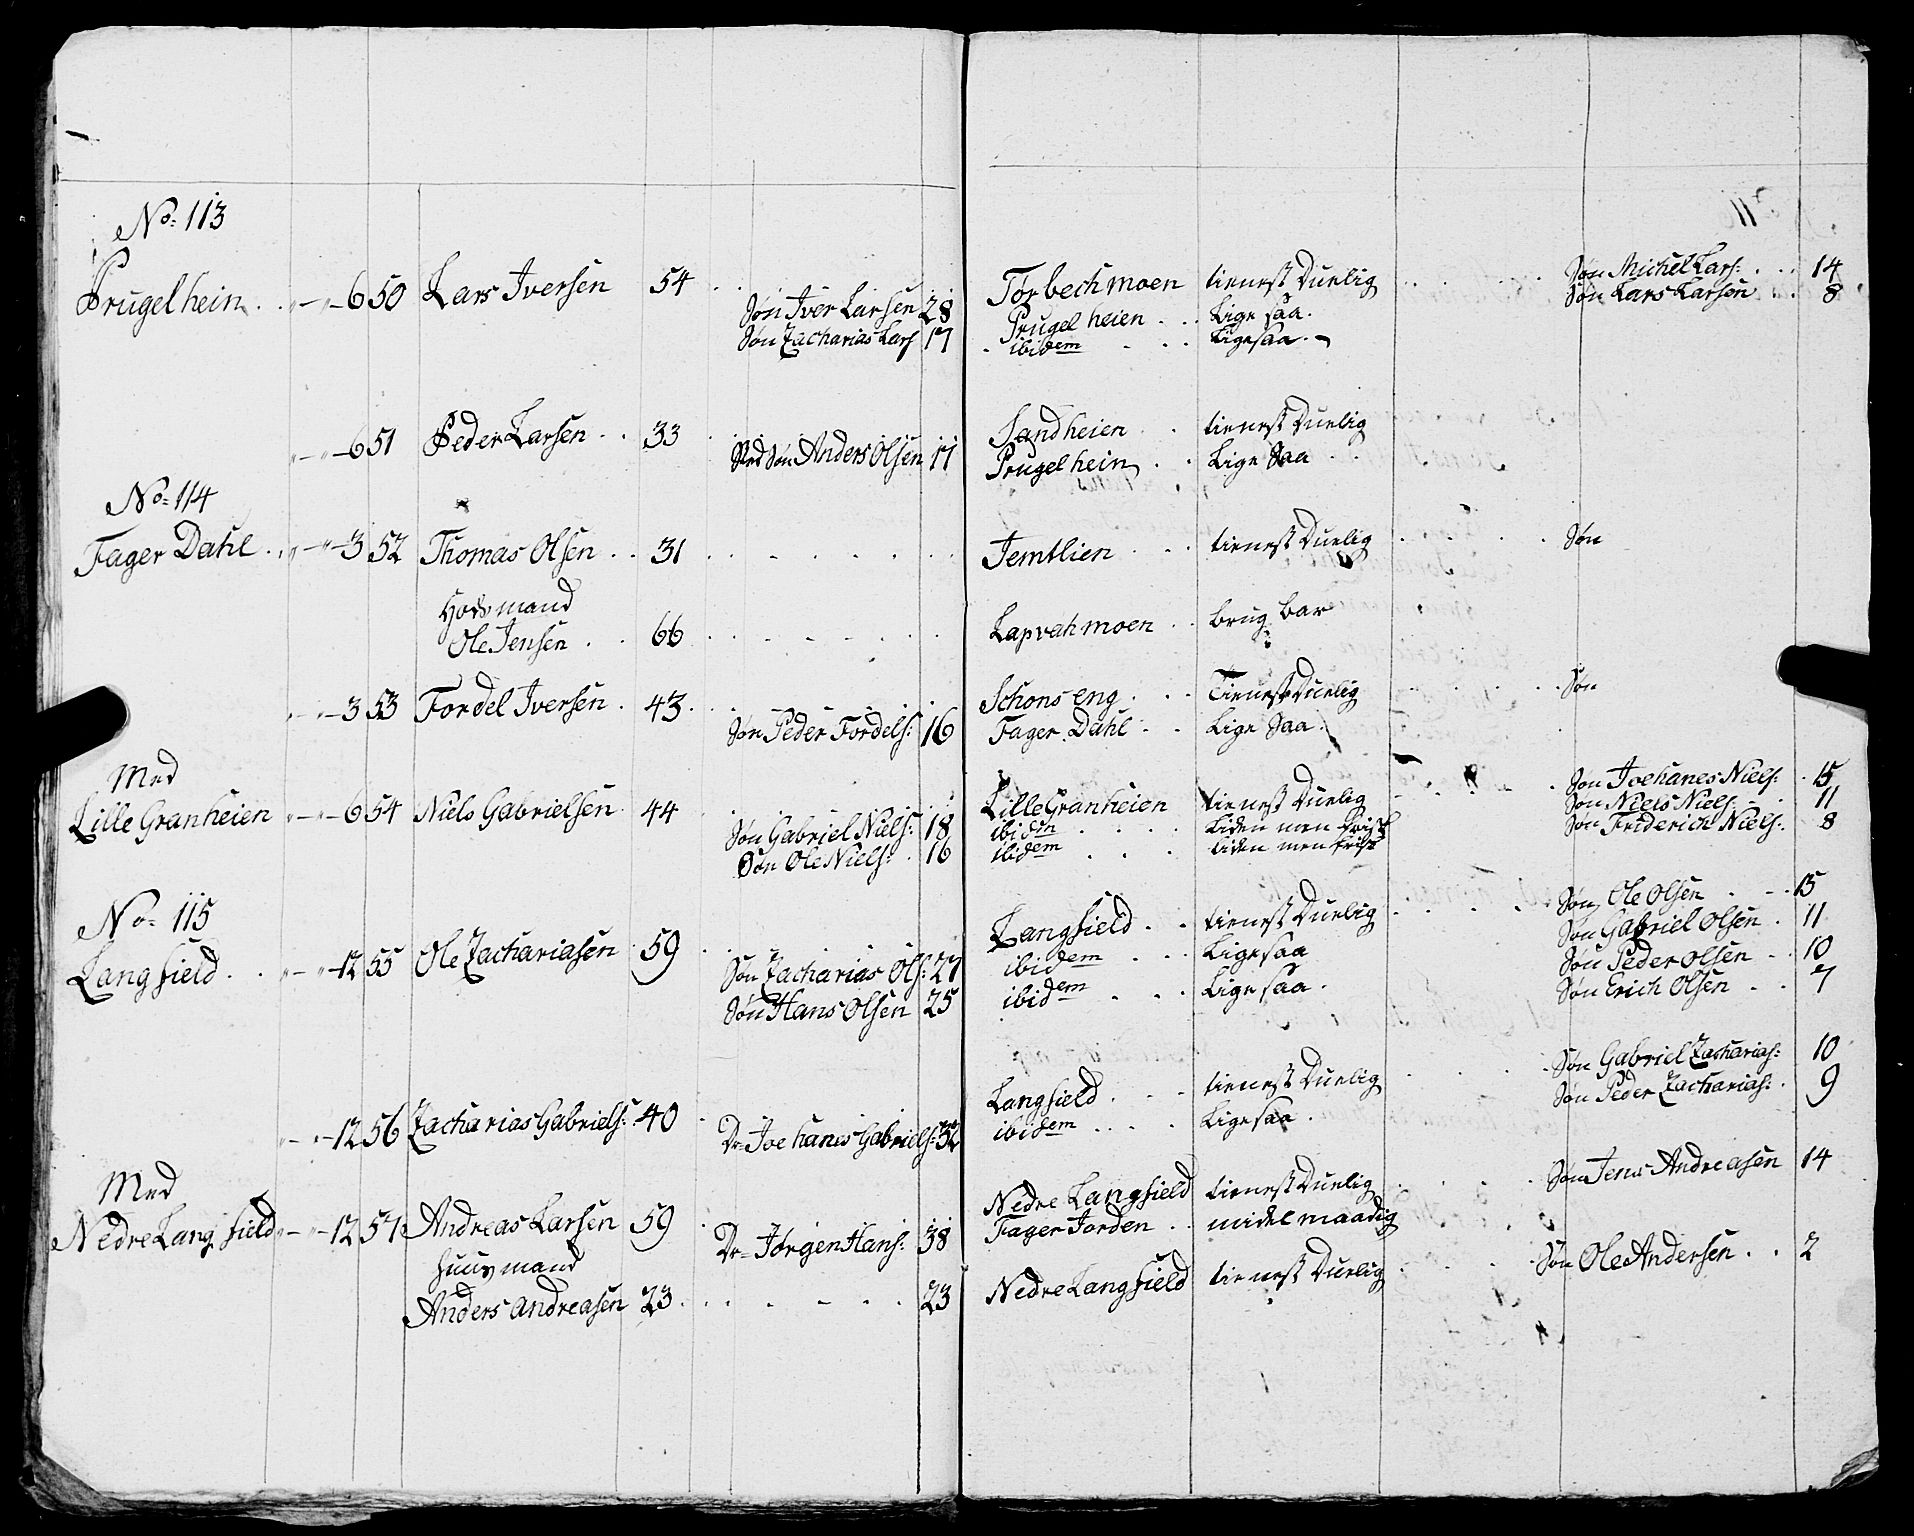 No: 113
Prugelhein . . „ – „ – 6 50 Lars Iversen 54 . . Torbechmoen tienest Duelig . . . . . Søn Michel Lars: . . . 14
Søn Iver Larsen 28 Prugelheien . . . Lige saa . Søn Lars Larsen . . 8
Søn Zacharias Lars 17 . ibidem . . . Ligesaa . –
„ – „ – 6 51 Peder Larsen . . 33 . Sandheien . . tienest Duelig
Sted Søn Anders Olsen 17 Prugelhein . . Lige Saa . .
No: 114
Fager Dahl . . „ – „ – 3 52 Thomas Olsen . . 31 . . . . . . . Jemtlien . . . tienest Duelig . . . . . Søn
Huusmand
Ole Jensen . . 66 . . . . . . . Lapvahmoen . . brug bar
„ – „ – 3 53 Fordel Iversen . 43 . Schonseng . . . Tienest Duelig . . . . . Søn
Søn Peder Fordels: 16 Fager Dahl . . Lige Saa .
Med
Lille Granheien „ – „ – 6 54 Niels Gabrielsen . 44 Lille Granheien tienest Duelig . . . . Søn Joehanes Niels: . 15
Søn Gabriel Niels: 18 ibidem . . . . Liden men frisk Søn Niels Niels: . 11
Søn Ole Niels: . 16 ibidem . . . liden men frisk Søn Friderich Niels: 8
No: 115
Langfield . . „ – „ – 12 55 Ole Zachariasen . 59 . Langfield . . tienest Duelig . . . . Søn Ole Olsen . . . 15
Søn Zacharias Ols: 27 ibidem . . . Ligesaa Søn Gabriel Olsen . 11
Søn Hans Olsen 25 ibidem . . . Ligesaa . Søn Peder Olsen . . 10
Søn Erich Olsen . . 7
„ – „ – 12 56 Zacharias Gabriels: 40 . Langfield . . . tienest Duelig . . . . Søn Gabriel Zacharias: 10
Dr= Joehanes Gabriels: 32 ibidem . . . . Ligesaa . Søn Peder Zacharias: . 9
Med
Nedre Langfield „ – „ – 12 57 Andreas Larsen 59 . Nedre Langfield tienest Duelig . . . . Søn Jens Andreasen 14
Dr= Jørgen Hans: 38 Fager Jorden . . midelmaadig
Huusmand
Anders Andreasen 23 . . . . . . . 23 Nedre Langfield tienest Duelig . . . . Søn Ole Andersen . . 2